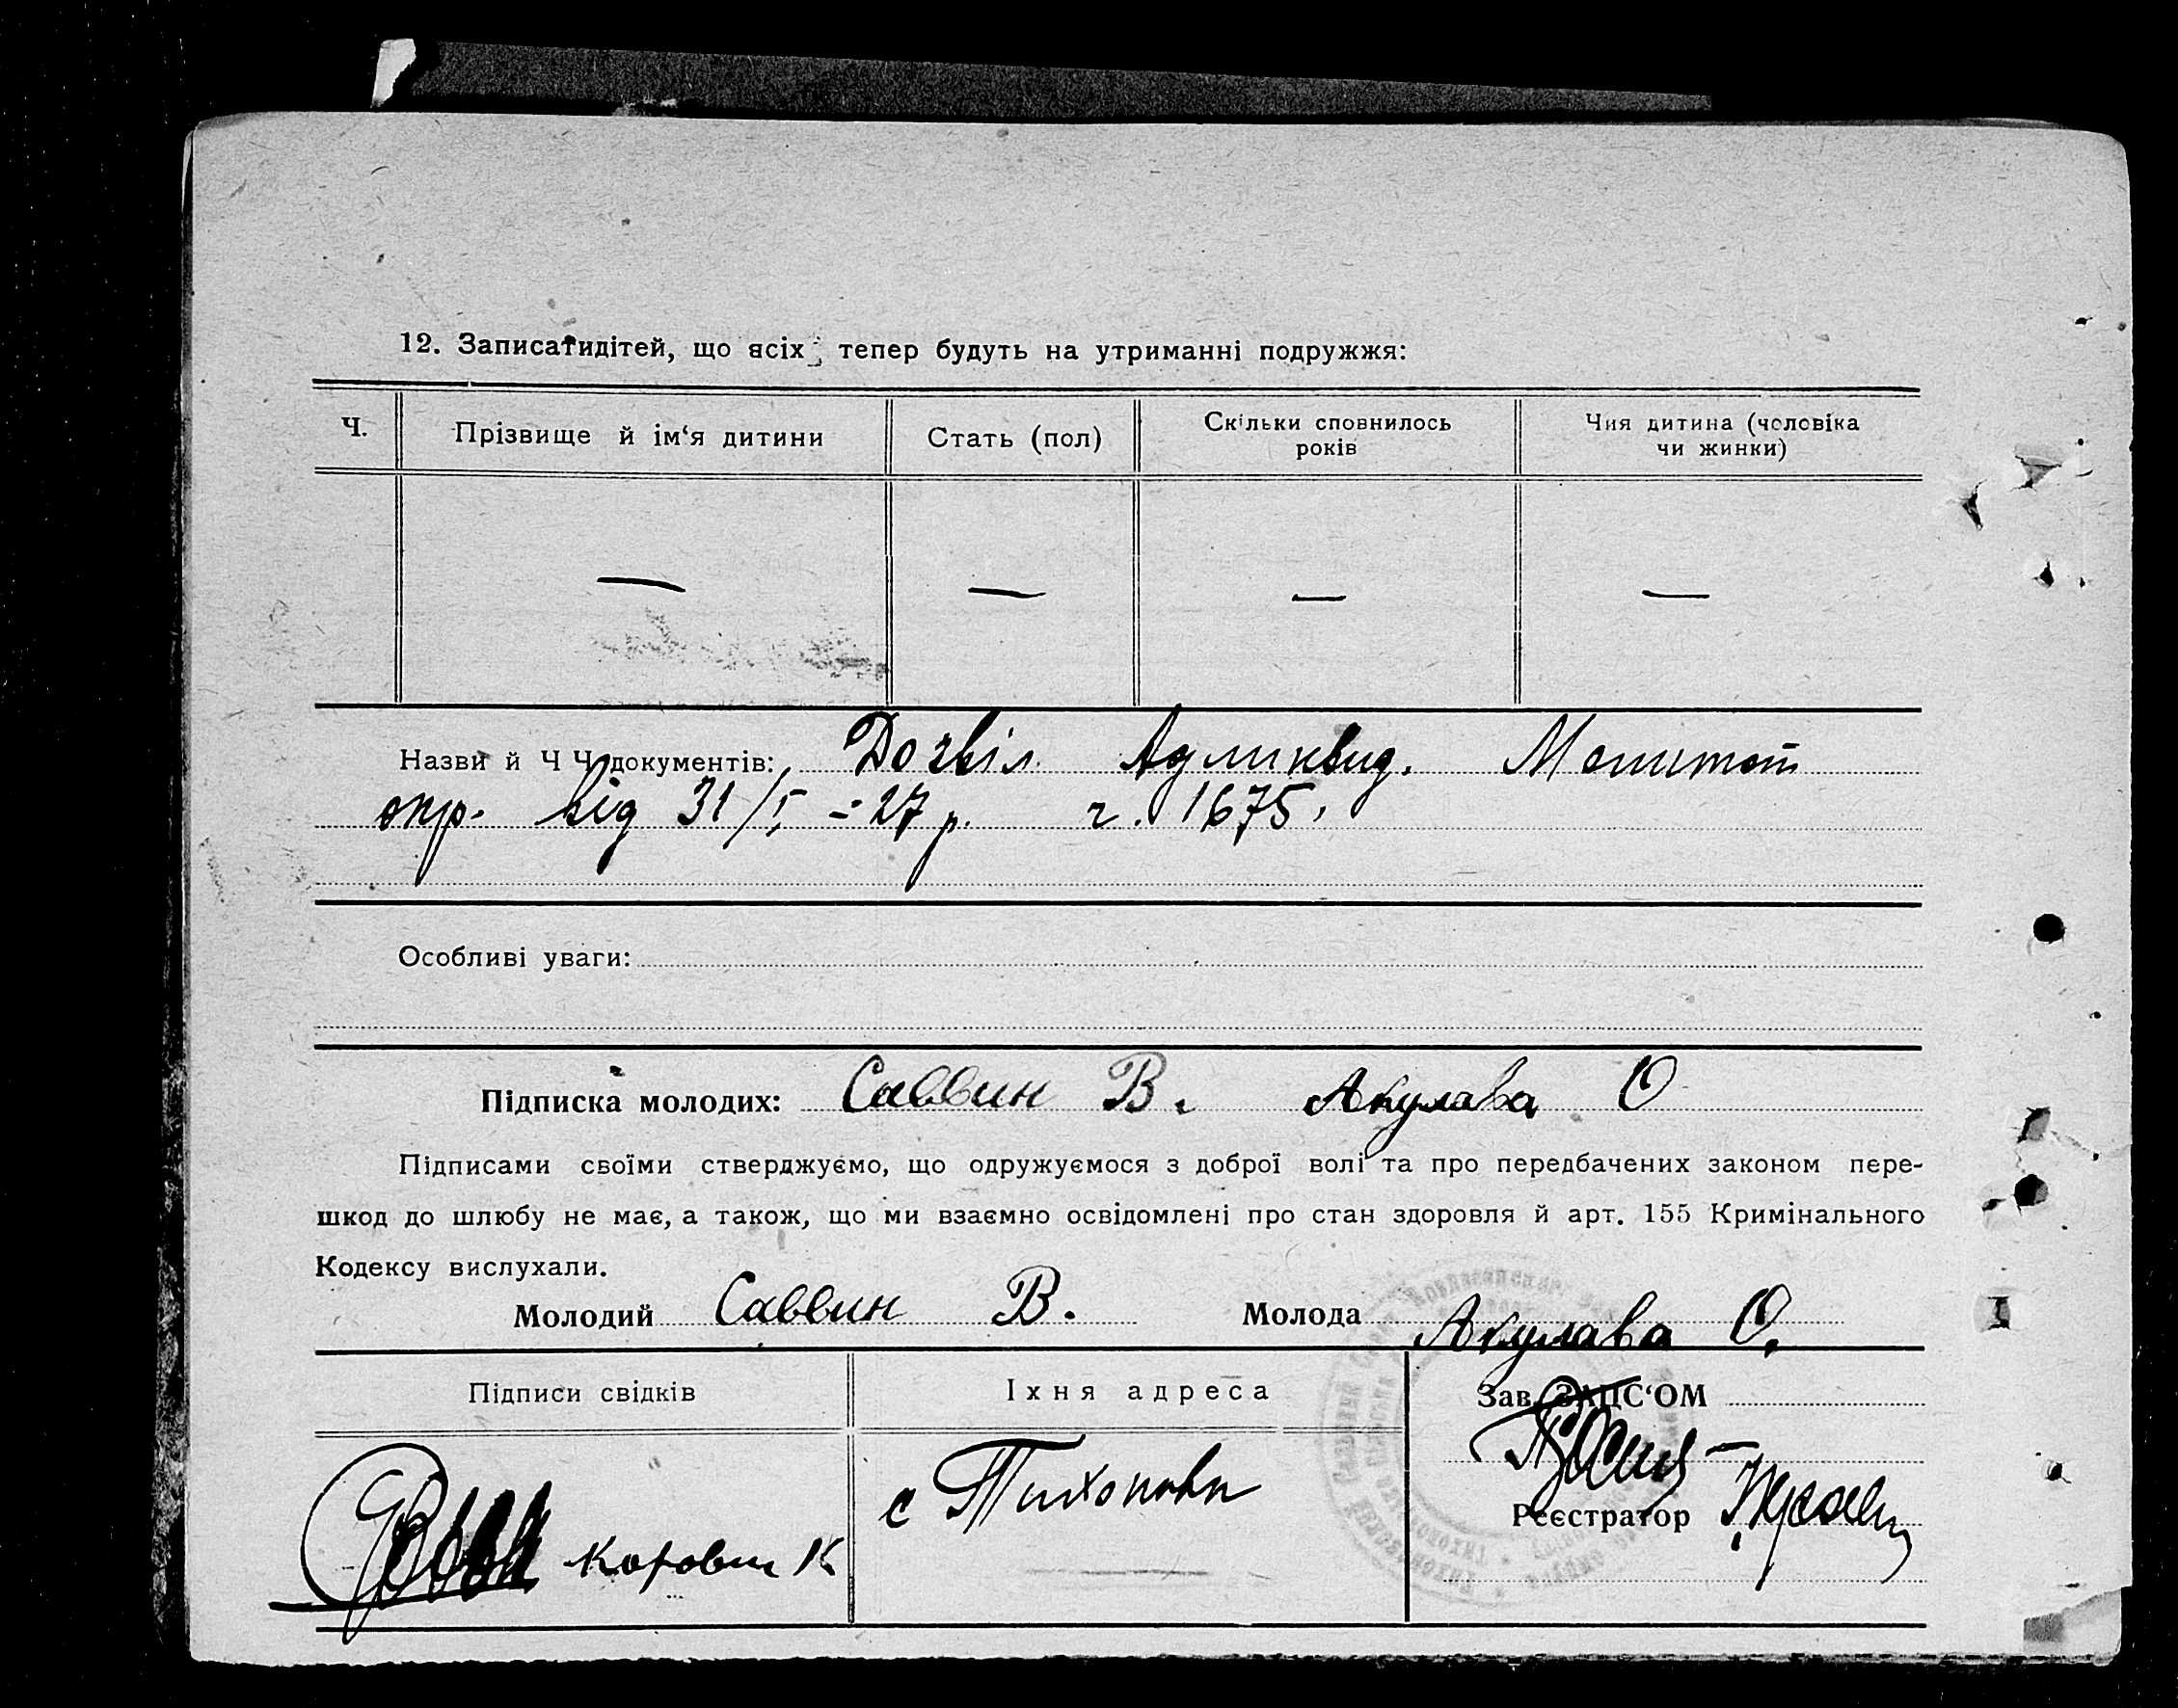 12. Записати дітей, що всіх тепер будуть на утриманні подружжя:
Ч.
Прізвище й ім‘я дитини
Стать (пол)
Скільки сповнилось
років
Чия дитина (чоловіка
чи жинки)
— — — —
Назви й Ч Ч документів: Дозвіл Адмліквид.
окр. від 31/I – 27 р. ч. 1675.
Особливі уваги:
Підписка молодих: Саввин В. Акулава О
Підписами своїми стверджуємо, що одружуємося з доброї волі та про передбачених законом пере-
шкод до шлюбу не має, а також, що ми взаємно освідомлені про стан здоровля й арт. 155 Кримінального
Кодексу вислухали.
Молодий Саввин В. Молода Акулава О.
Підписи свідків
Іхня адреса
Зав. ЗАПС‘ОМ
Коровин К
с Тихоновки
Реєстратор